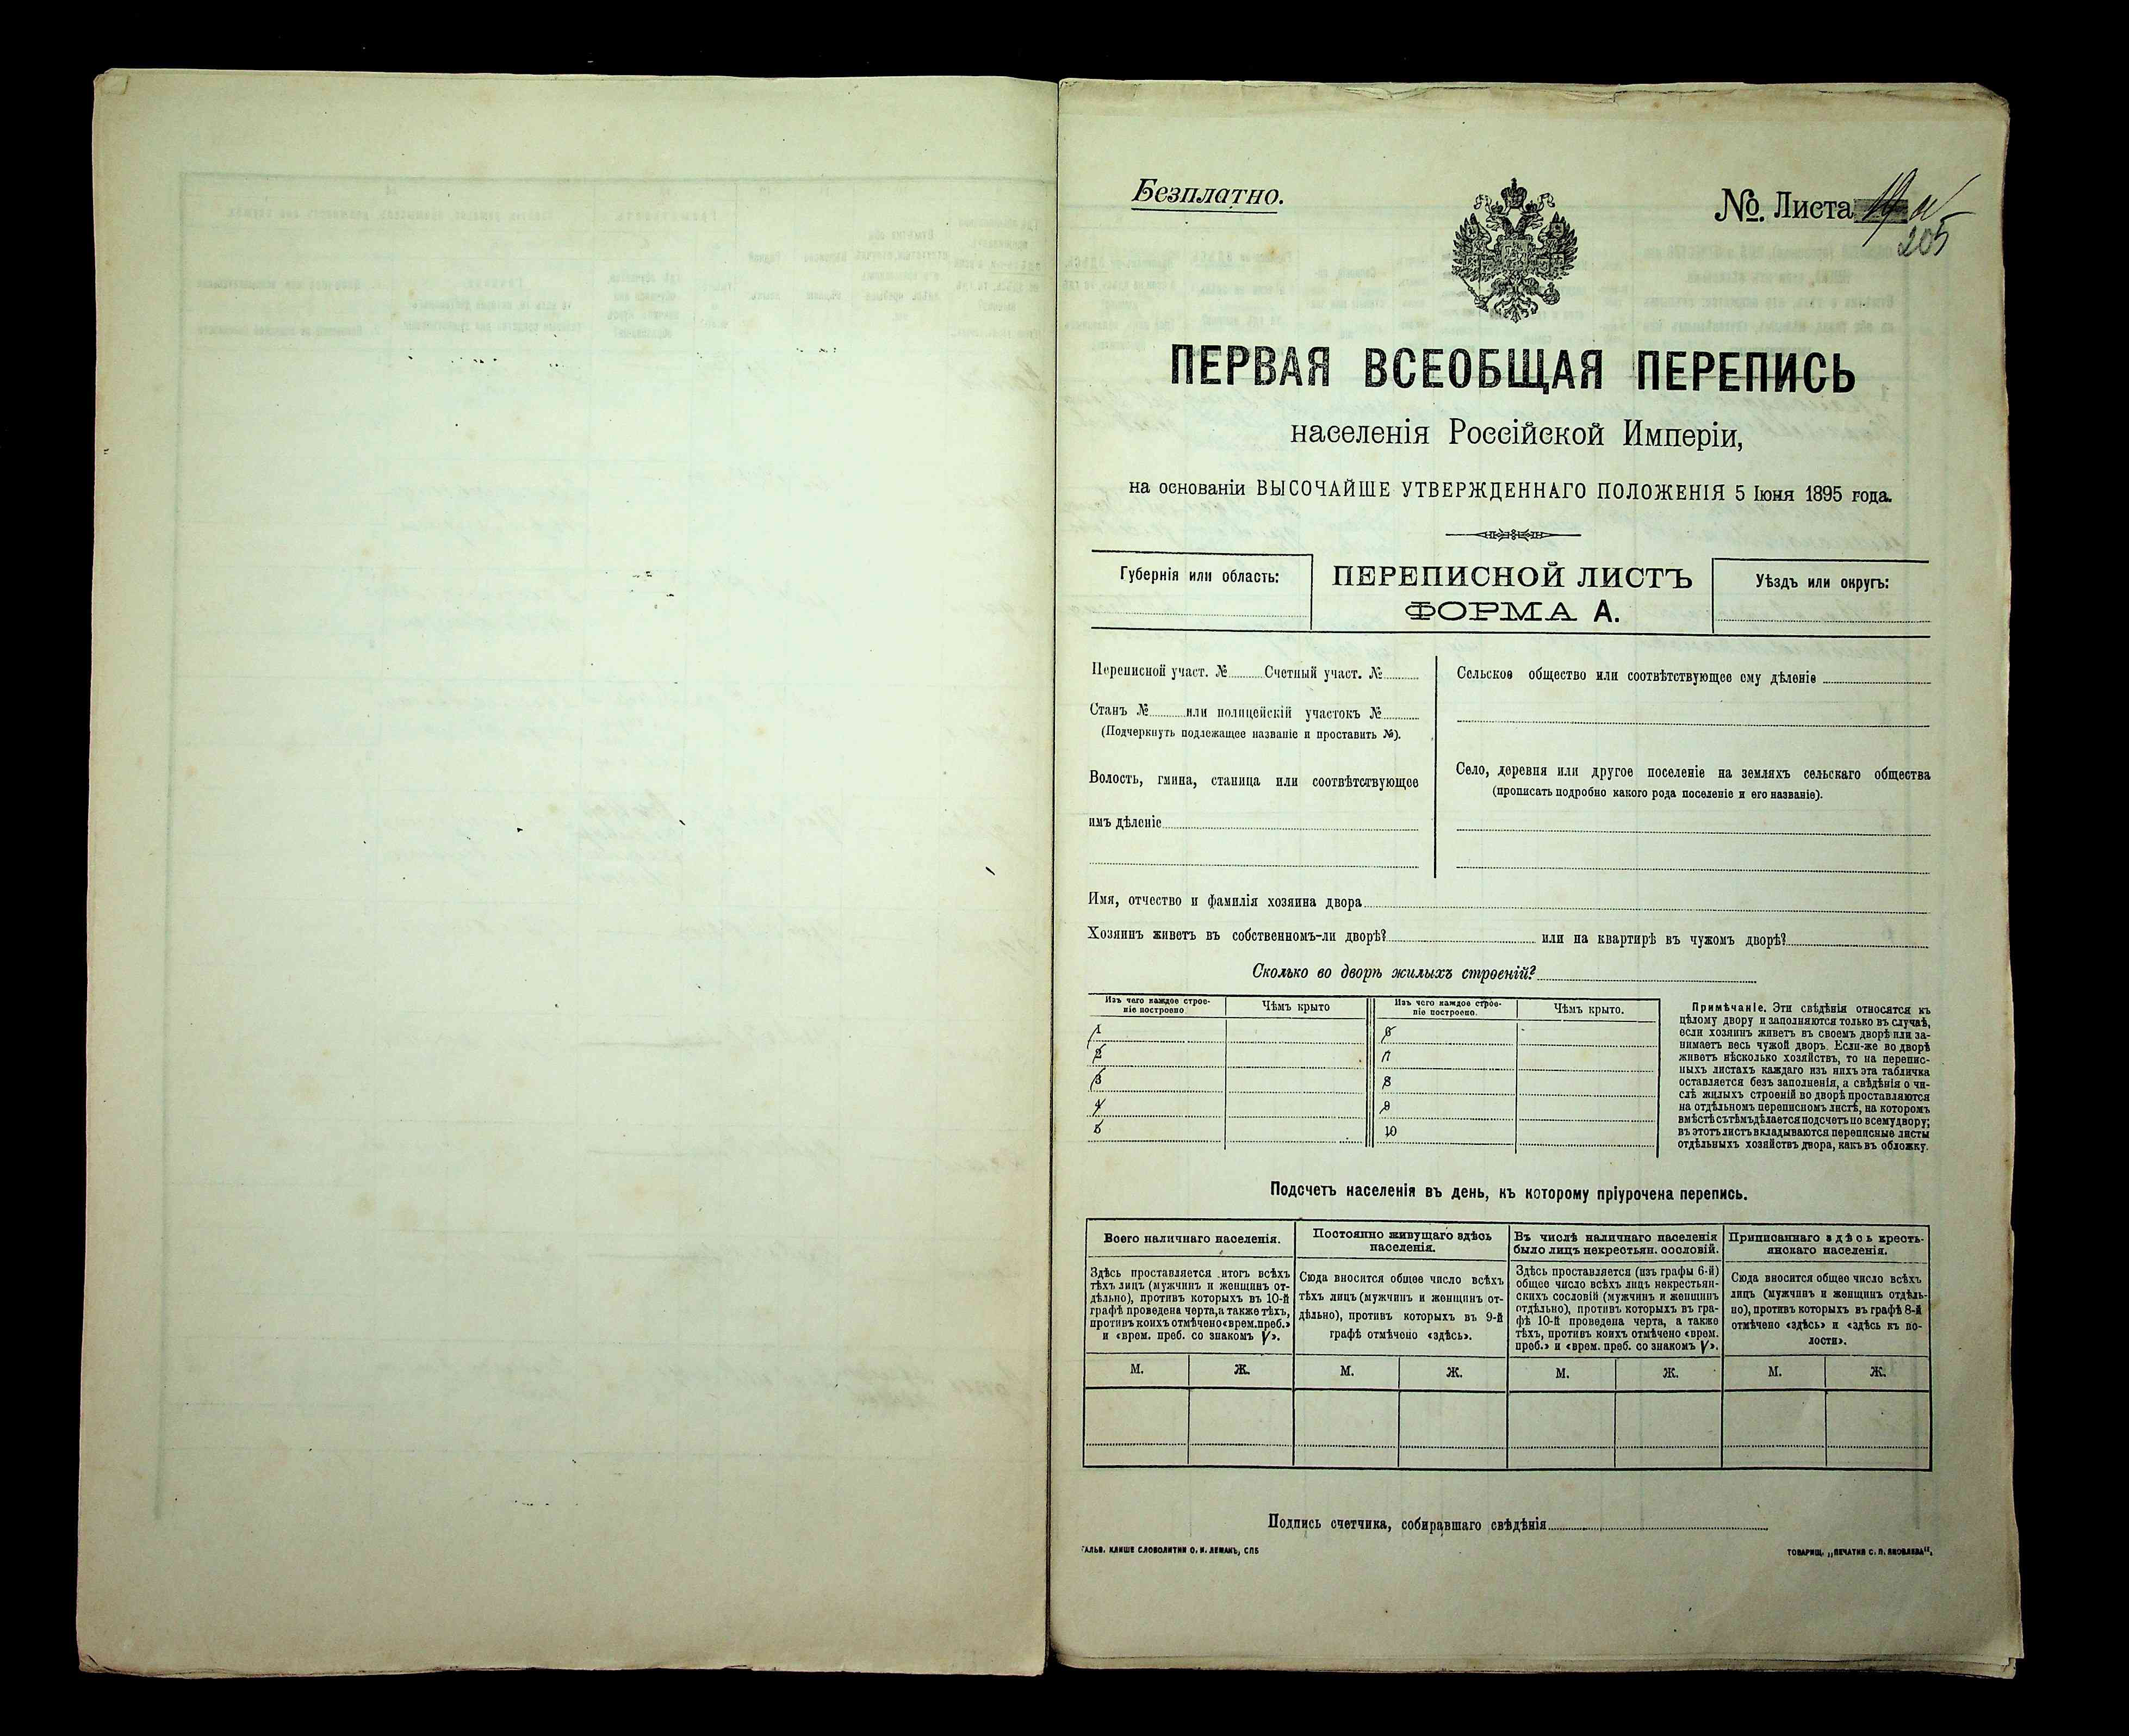 Безплатно.
№. Листа 19
205
ПЕРВАЯ ВСЕОБЩАЯ ПЕРЕПИСЬ
населенія Россійской Имперіи,
на основаніи ВЫСОЧАЙШЕ УТВЕРЖДЕННАГО ПОЛОЖЕНІЯ 5 Іюня 1895 года.
Губернія или область:
ПЕРЕПИСНОЙ ЛИСТЪ
ФОРМА А.
Уѣздъ или округъ:
Переписной участ. № Счетный участ. №
Станъ № или полицейскій участокъ №
(Подчеркнуть подлежащее названіе и проставить №).
Волость, гмина, станица или соотвѣтствующее
имъ дѣленіе
Сельское общество или соотвѣтствующее ему дѣленіе
Село, деревня или другое поселеніе на земляхъ сельскаго общества
(прописать подробно какого рода поселеніе и его названіе).
Имя, отчество и фамилія хозяина двора
Хозяинъ живетъ въ собственномъ-ли дворѣ? или на квартирѣ въ чужомъ дворѣ?
Сколько во дворѣ жилыхъ строеній?
Изъ чего каждое строе-
ніе построено
Чѣмъ крыто
Изъ чего каждое строе-
ніе построено.
Чѣмъ крыто.
1
2
3
4
5
6
7
8
9
10
Примѣчаніе. Эти свѣдѣнія относятся къ
цѣлому двору и заполняются только въ случаѣ,
если хозяинъ живетъ въ своемъ дворѣ или за-
нимаетъ весь чужой дворъ. Если-же во дворѣ
живетъ нѣсколько хозяйствъ, то на перепис-
ныхъ листахъ каждаго изъ нихъ эта табличка
оставляется безъ заполненія, а свѣдѣнія о чи-
слѣ жилыхъ строеній во дворѣ проставляются
на отдѣльномъ переписномъ листѣ, на которомъ
вмѣстѣ съ тѣмъ дѣлается подсчетъ по всему двору;
въ этотъ листъ вкладываются переписные листы
отдѣльныхъ хозяйствъ двора, какъ въ обложку.
Подсчетъ населенія въ день, къ которому пріурочена перепись.
Всего наличнаго населенія.
Здѣсь проставляется итогъ всѣхъ
тѣхъ лицъ (мужчинъ и женщинъ от-
дѣльно), противъ которыхъ въ 10-й
графѣ проведена черта, а также тѣхъ,
противъ коихъ отмѣчено «врем. преб.»
и «врем. преб. со знакомъ V».
Постоянно живущаго здѣсь
населенія.
Сюда вносится общее число всѣхъ
тѣхъ лицъ (мужчинъ и женщинъ от-
дѣльно), противъ которыхъ въ 9-й
графѣ отмѣчено «здѣсь».
Въ числѣ наличнаго населенія
было лицъ некрестьян. сословій.
Здѣсь проставляется (изъ графы 6-й)
общее число всѣхъ лицъ некрестьян-
скихъ сословій (мужчинъ и женщинъ
отдѣльно), противъ которыхъ въ гра-
фѣ 10-й проведена черта, а также
тѣхъ, противъ коихъ отмѣчено «врем.
преб.» и «врем. преб. со знакомъ V».
Приписаннаго здѣсь кресть-
янскаго населенія.
Сюда вносится общее число всѣхъ
лицъ (мужчинъ и женщинъ отдѣль-
но), противъ которыхъ въ графѣ 8-й
отмѣчено «здѣсь» и «здѣсь къ во-
лости».
М. Ж. М. Ж. М. Ж. М. Ж.
Подпись счетчика, собиравшаго свѣдѣнія
ГАЛЬВ. КЛИШЕ СЛОВОЛИТНИ О. И. ЛЕМАНЪ, СПБ
ТОВАРИЩ. „ПЕЧАТНЯ С. П. ЯКОВЛЕВА“.